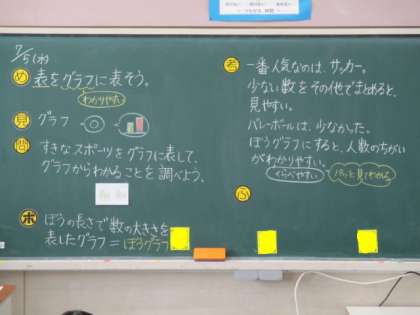 7/5(水)
め 表をグラフに表そう。
わかりやすく
見 グラフ
問 すきなスポーツをグラフに表して、
グラフからわかることを調べよう。
ホ ぼうの長さで数の大きさを
表したグラフ=ぼうグラフ
考 一番人気なのは、サッカー。
少ない数をその他でまとめると、
見やすい。
バレーボールは、少なかった。
ぼうグラフにすると、人数のちがい
がわかりやすい。
くらべやすい
パッと見てわかる
ふ